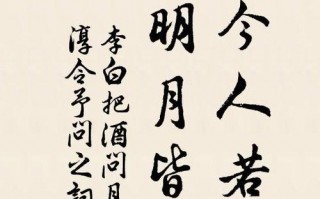 今人若
明月皆
李白把酒问月
淳令予问之词